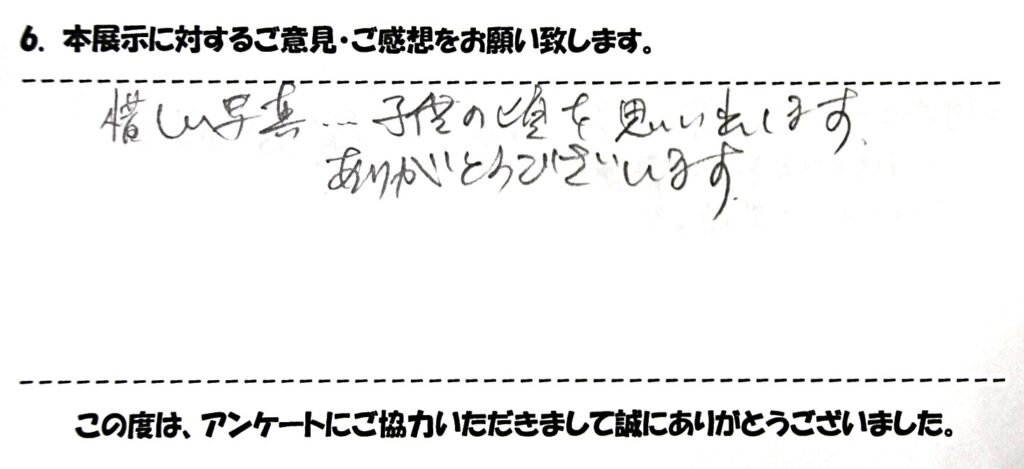 6. 本展示に対するご意見・ご感想をお願い致します。
惜しい写真…子供の頃を思い出します.
ありがとうございます.
この度は、アンケートにご協力いただきまして誠にありがとうございました。